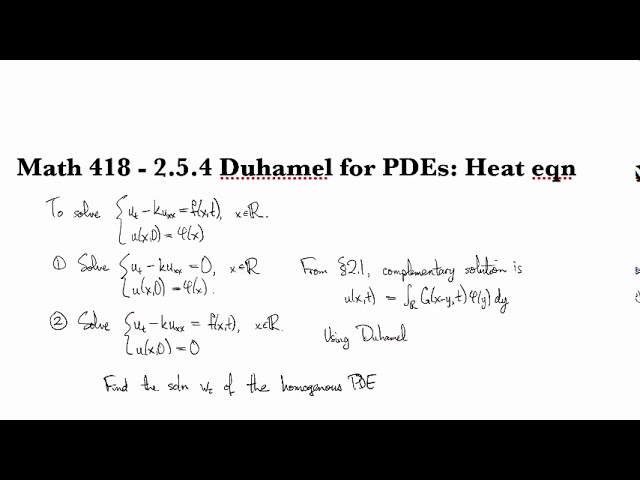 Math 418 - 2.5.4 Duhamel for PDEs: Heat eqn
To solve { u_t - k u_xx = f(x,t), x∈ℝ.
u(x,0) = φ(x)
① Solve { u_t - k u_xx = 0, x∈ℝ
u(x,0) = φ(x).
From §2.1, complementary solution is
u(x,t) = ∫_ℝ G(x-y,t) φ(y) dy
② Solve { u_t - k u_xx = f(x,t), x∈ℝ.
u(x,0) = 0
Using Duhamel
Find the soln w_τ of the homogenous PDE